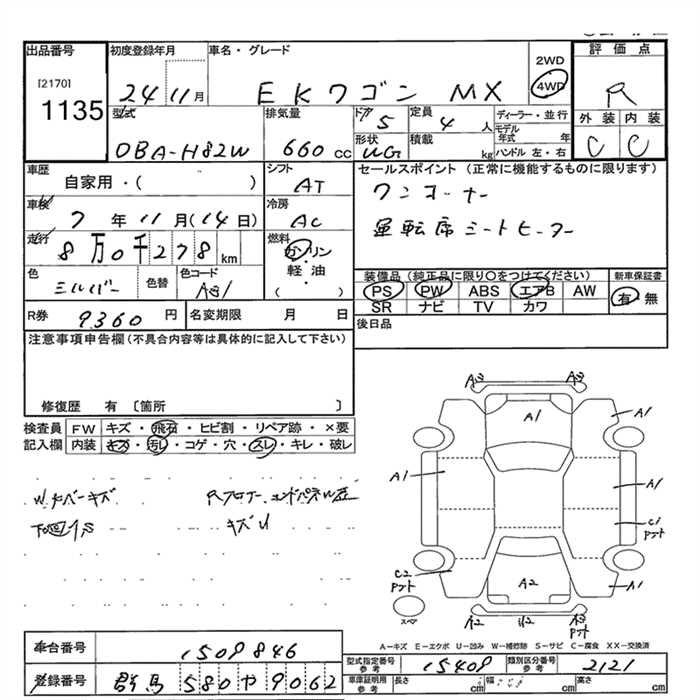 出品番号 初度登録年月 車名・グレード 2WD 評価点
[2170] 1135 24 11月 EKワゴン MX 4WD R
型式 排気量 ドア 5 定員 4人 ディーラー・並行 外装 内装
DBA-H82W 660cc 形状 WG 積載 kg モデル年式 年 ハンドル 左・右 C C
車歴 シフト セールスポイント (正常に機能するものに限ります)
自家用・( ) AT ワンオーナー
車検 7年11月(14日) 冷房 AC 運転席シートヒーター
走行 8万0千278km 燃料 ガソリン・軽油 ( )
色 シルバー 色替 色コード A31 装備品 (純正品に限り○をつけてください) 新車保証書
PS PW ABS エアB AW 有・無
SR ナビ TV カワ
R券 9360円 名変期限 月 日 後日品
注意事項申告欄(不具合内容等は具体的に記入して下さい)
修復歴 有 〔箇所 〕
検査員 FW キズ・飛石・ヒビ割・リペア跡・×要
記入欄 内装 キズ・汚れ・コゲ・穴・スレ・キレ・破レ
キズ
キズU
A3 A3
A1 A1
A1 A1
C1
C2 A1
A2
スペア A2 U2 A3
A−キズ E−エクボ U−凹み W−補修跡 S−サビ C−腐食 XX−交換済
車台番号 1509846 型式指定番号 参考 15409 類別区分番号 参考 2121
登録番号 群馬 580 や 9062 車庫証明用 参考 長さ cm 幅 cm 高さ cm